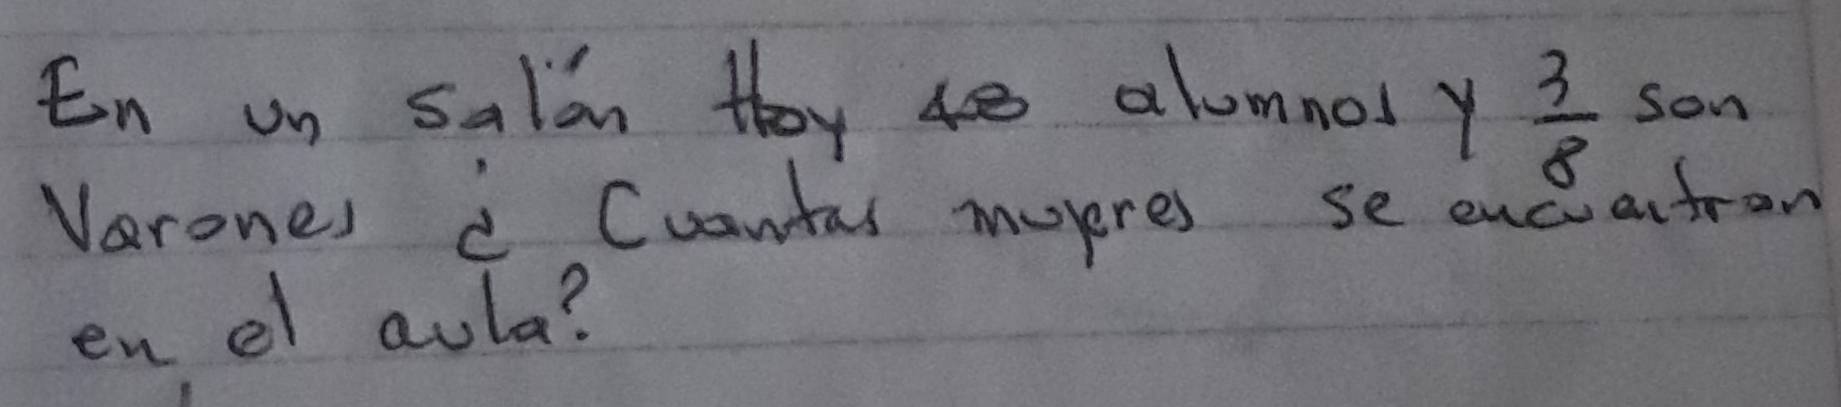 En un salón Hay 48 alumnos y 3/8 son
Varones ¿ Cuantas mujeres se encuentran
en el aula?